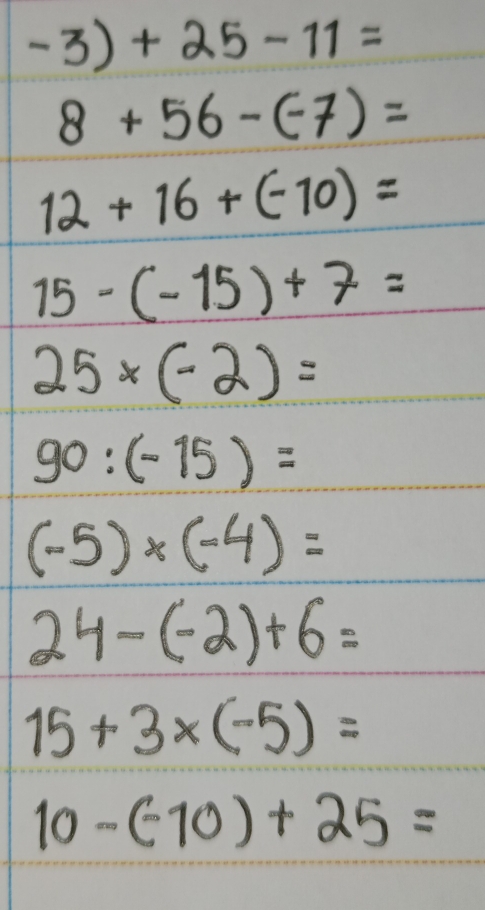 -3) + 25 - 11 =
8 + 56 - (-7) =
12 + 16 + (-10) =
15 - (-15) + 7 =
25 × (-2) =
90 : (-15) =
(-5) × (-4) =
24 - (-2) + 6 =
15 + 3 × (-5) =
10 - (-10) + 25 =